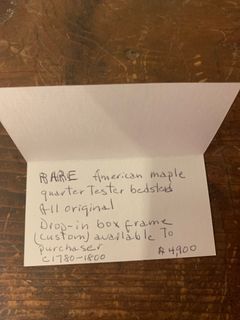 RARE American maple
quarter Tester bedstead
All original
Drop-in box frame
(custom) available To
purchaser
c1780-1800 $4900